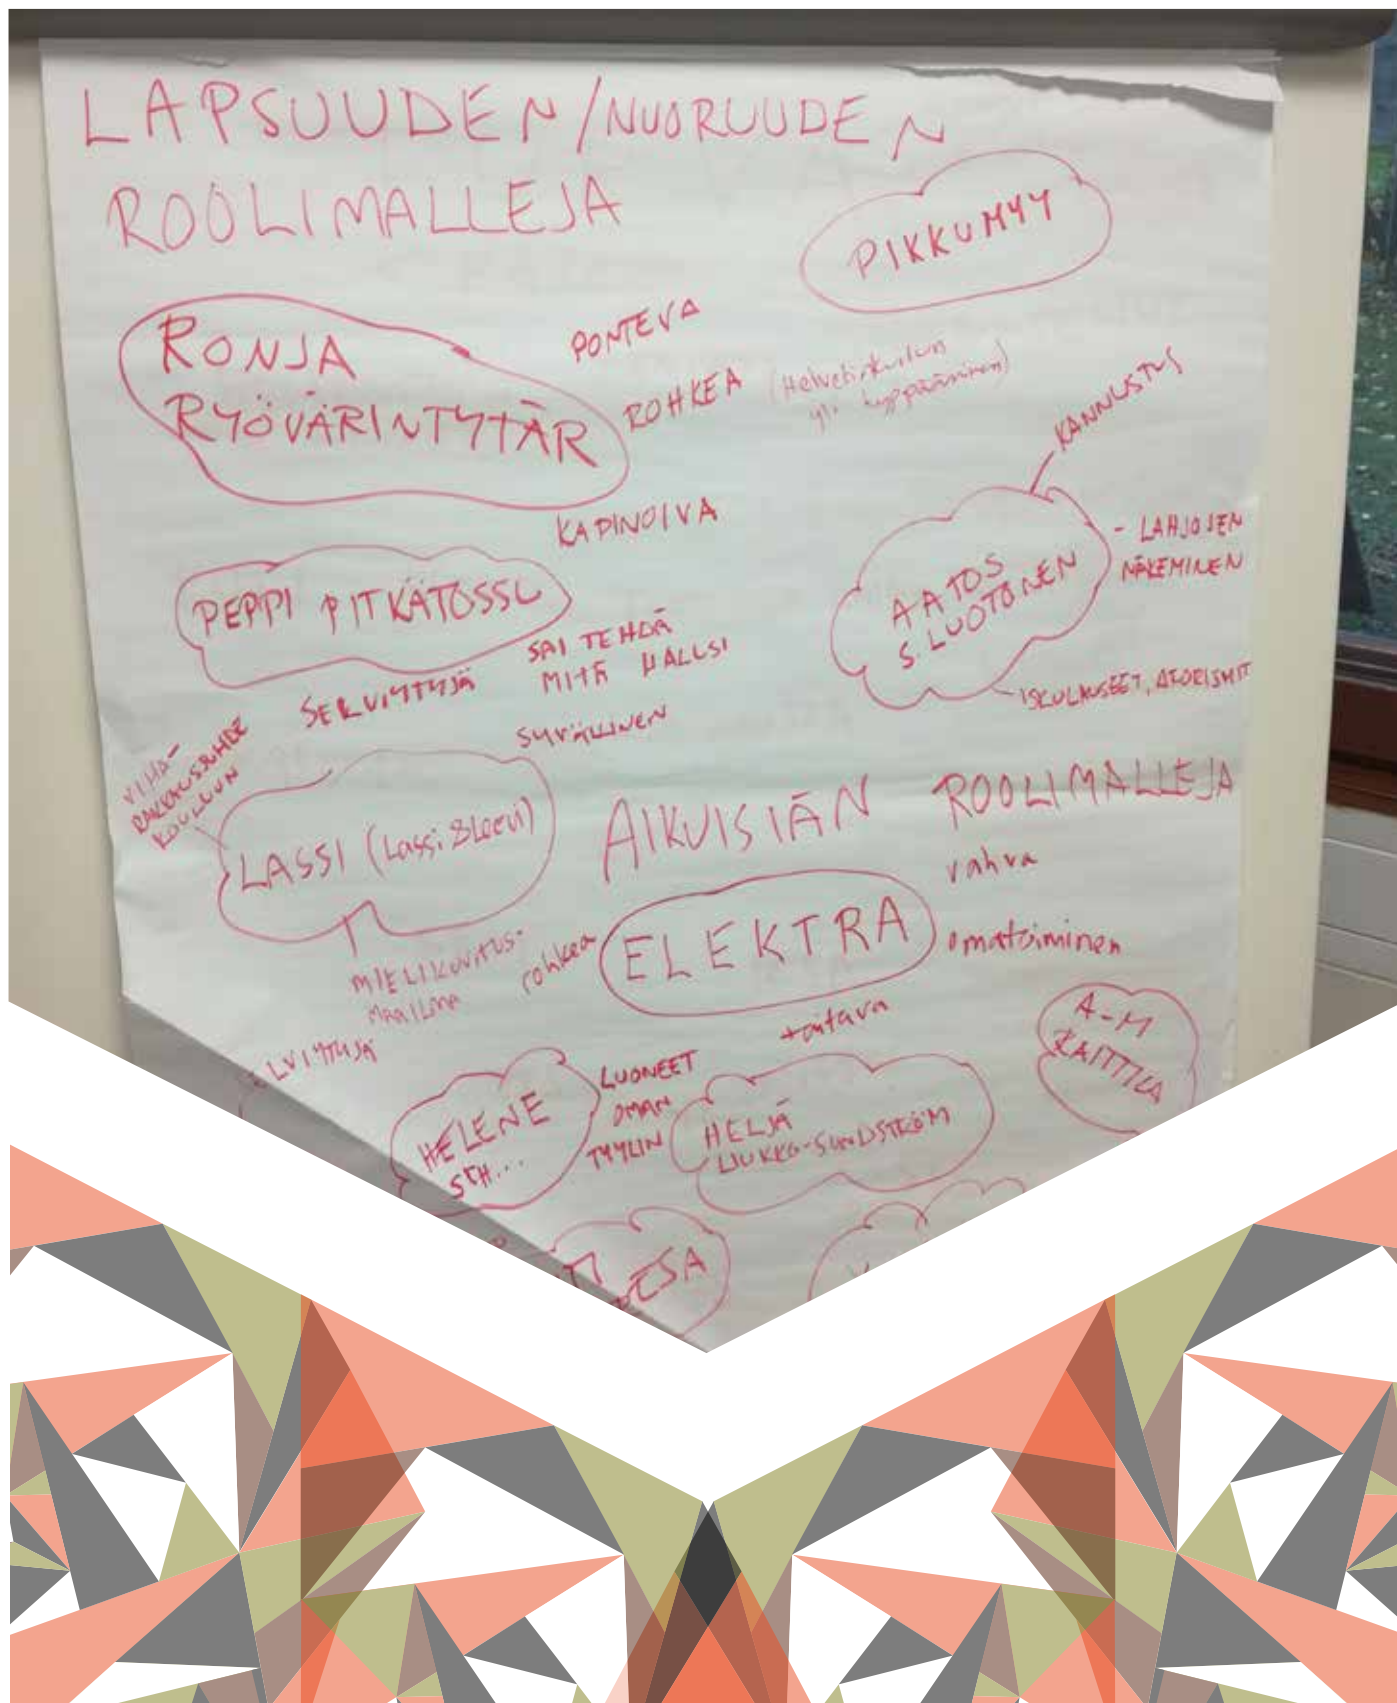 LAPSUUDEN/NUORUUDEN
ROOLIMALLEJA
PIKKUMYY
RONJA
RYÖVÄRINTYTÄR
PONTEVA
ROHKEA (Helvetinkuilun
yli hyppääminen)
KAPINOIVA
KANNUSTUS
AATOS
S. LUOTONEN
- LAHJOJEN
NÄKEMINEN
ISKULAUSEET, AFORISMIT
PEPPI PITKÄTOSSU
SAI TEHDÄ
MITÄ HALUSI
SELVIYTYJÄ
SYVÄLLINEN
VIHA-
RAKKAUSSUHDE
KOULUUN
LASSI (Lassi & Leevi)
MIELIKUVITUS-
MAAILMA
LVIYTYJÄ
AIKUISIÄN ROOLIMALLEJA
ELEKTRA
vahva
rohkea
omatoiminen
taitava
A-M
RAITTILA
HELENE
SCH...
LUONEET
OMAN
TYYLIN
HELJÄ
LIUKKO-SUNDSTRÖM
ESA